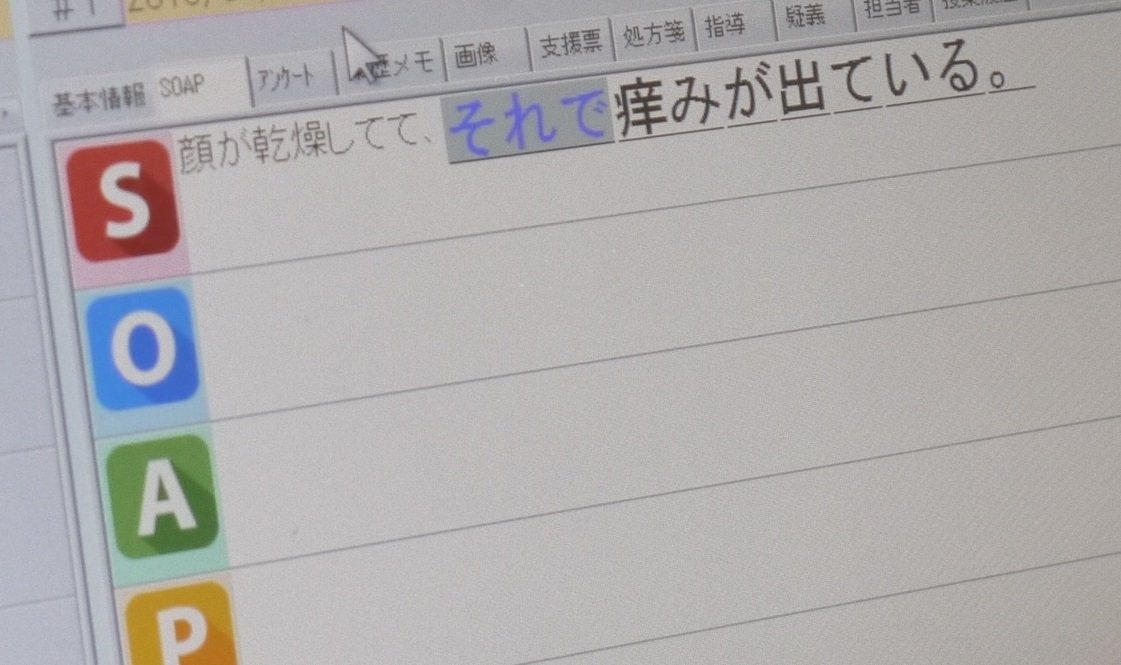 基本情報 SOAP アンケート メモ 画像 支援票 処方箋 指導 疑義 担当者
S 顔が乾燥してて、それで痒みが出ている。
O
A
P